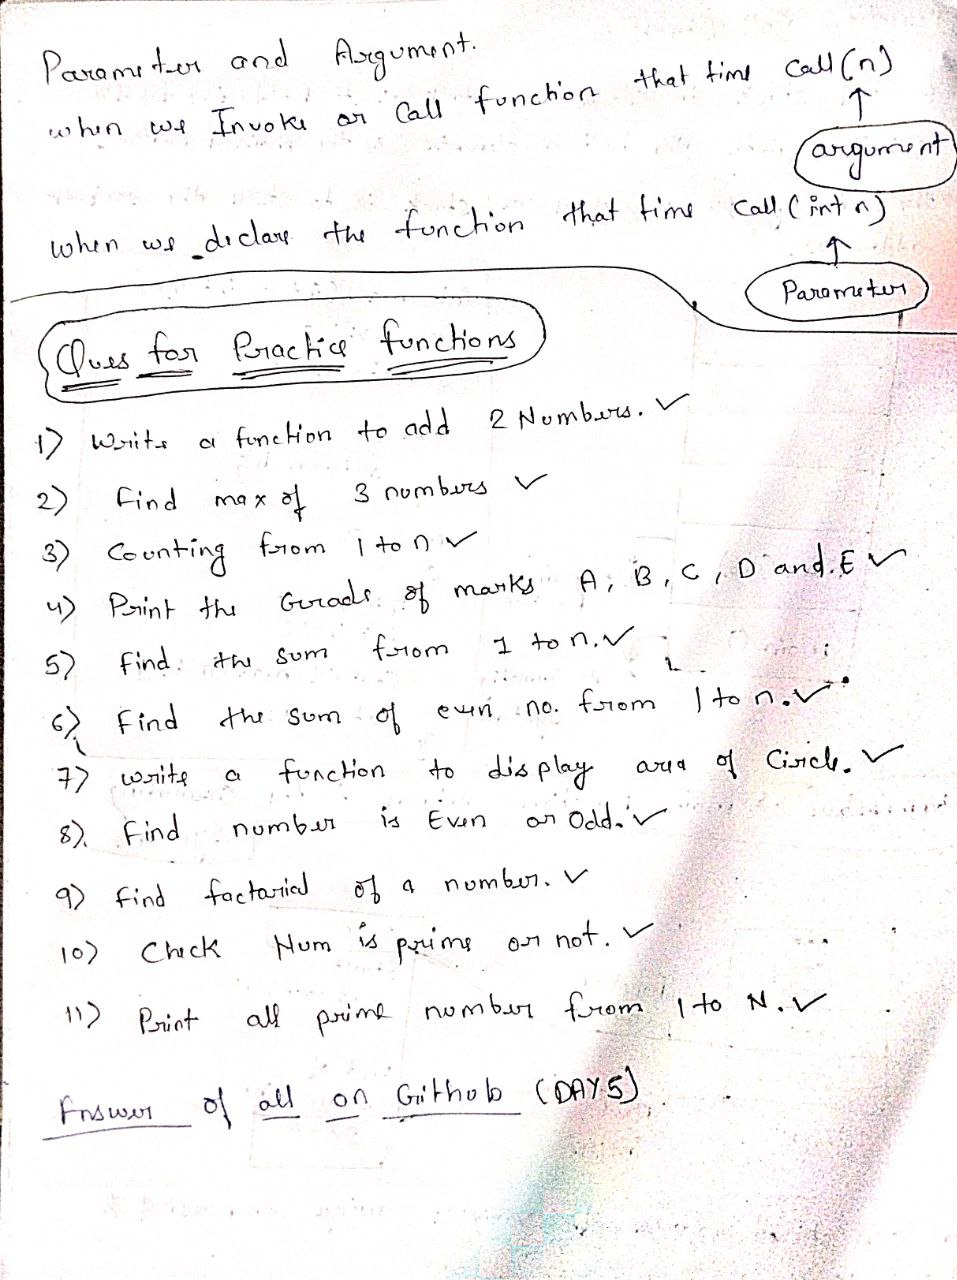 Parameter and Argument.
when we Invoke or Call function that time Call(n)
argument
when we declare the function that time Call(int n)
Parameter
Ques for Practice functions
1) Write a function to add 2 Numbers. ✓
2) Find max of 3 numbers ✓
3) Counting from 1 to n ✓
4) Print the Grade of marks A, B, C, D and E ✓
5) Find the sum from 1 to n. ✓
6) Find the sum of even no. from 1 to n. ✓
7) write a function to display area of Circle. ✓
8) Find number is Even or Odd. ✓
9) Find factorial of a number. ✓
10) Check Num is prime or not. ✓
11) Print all prime number from 1 to N. ✓
Answer of all on Github (DAY5)